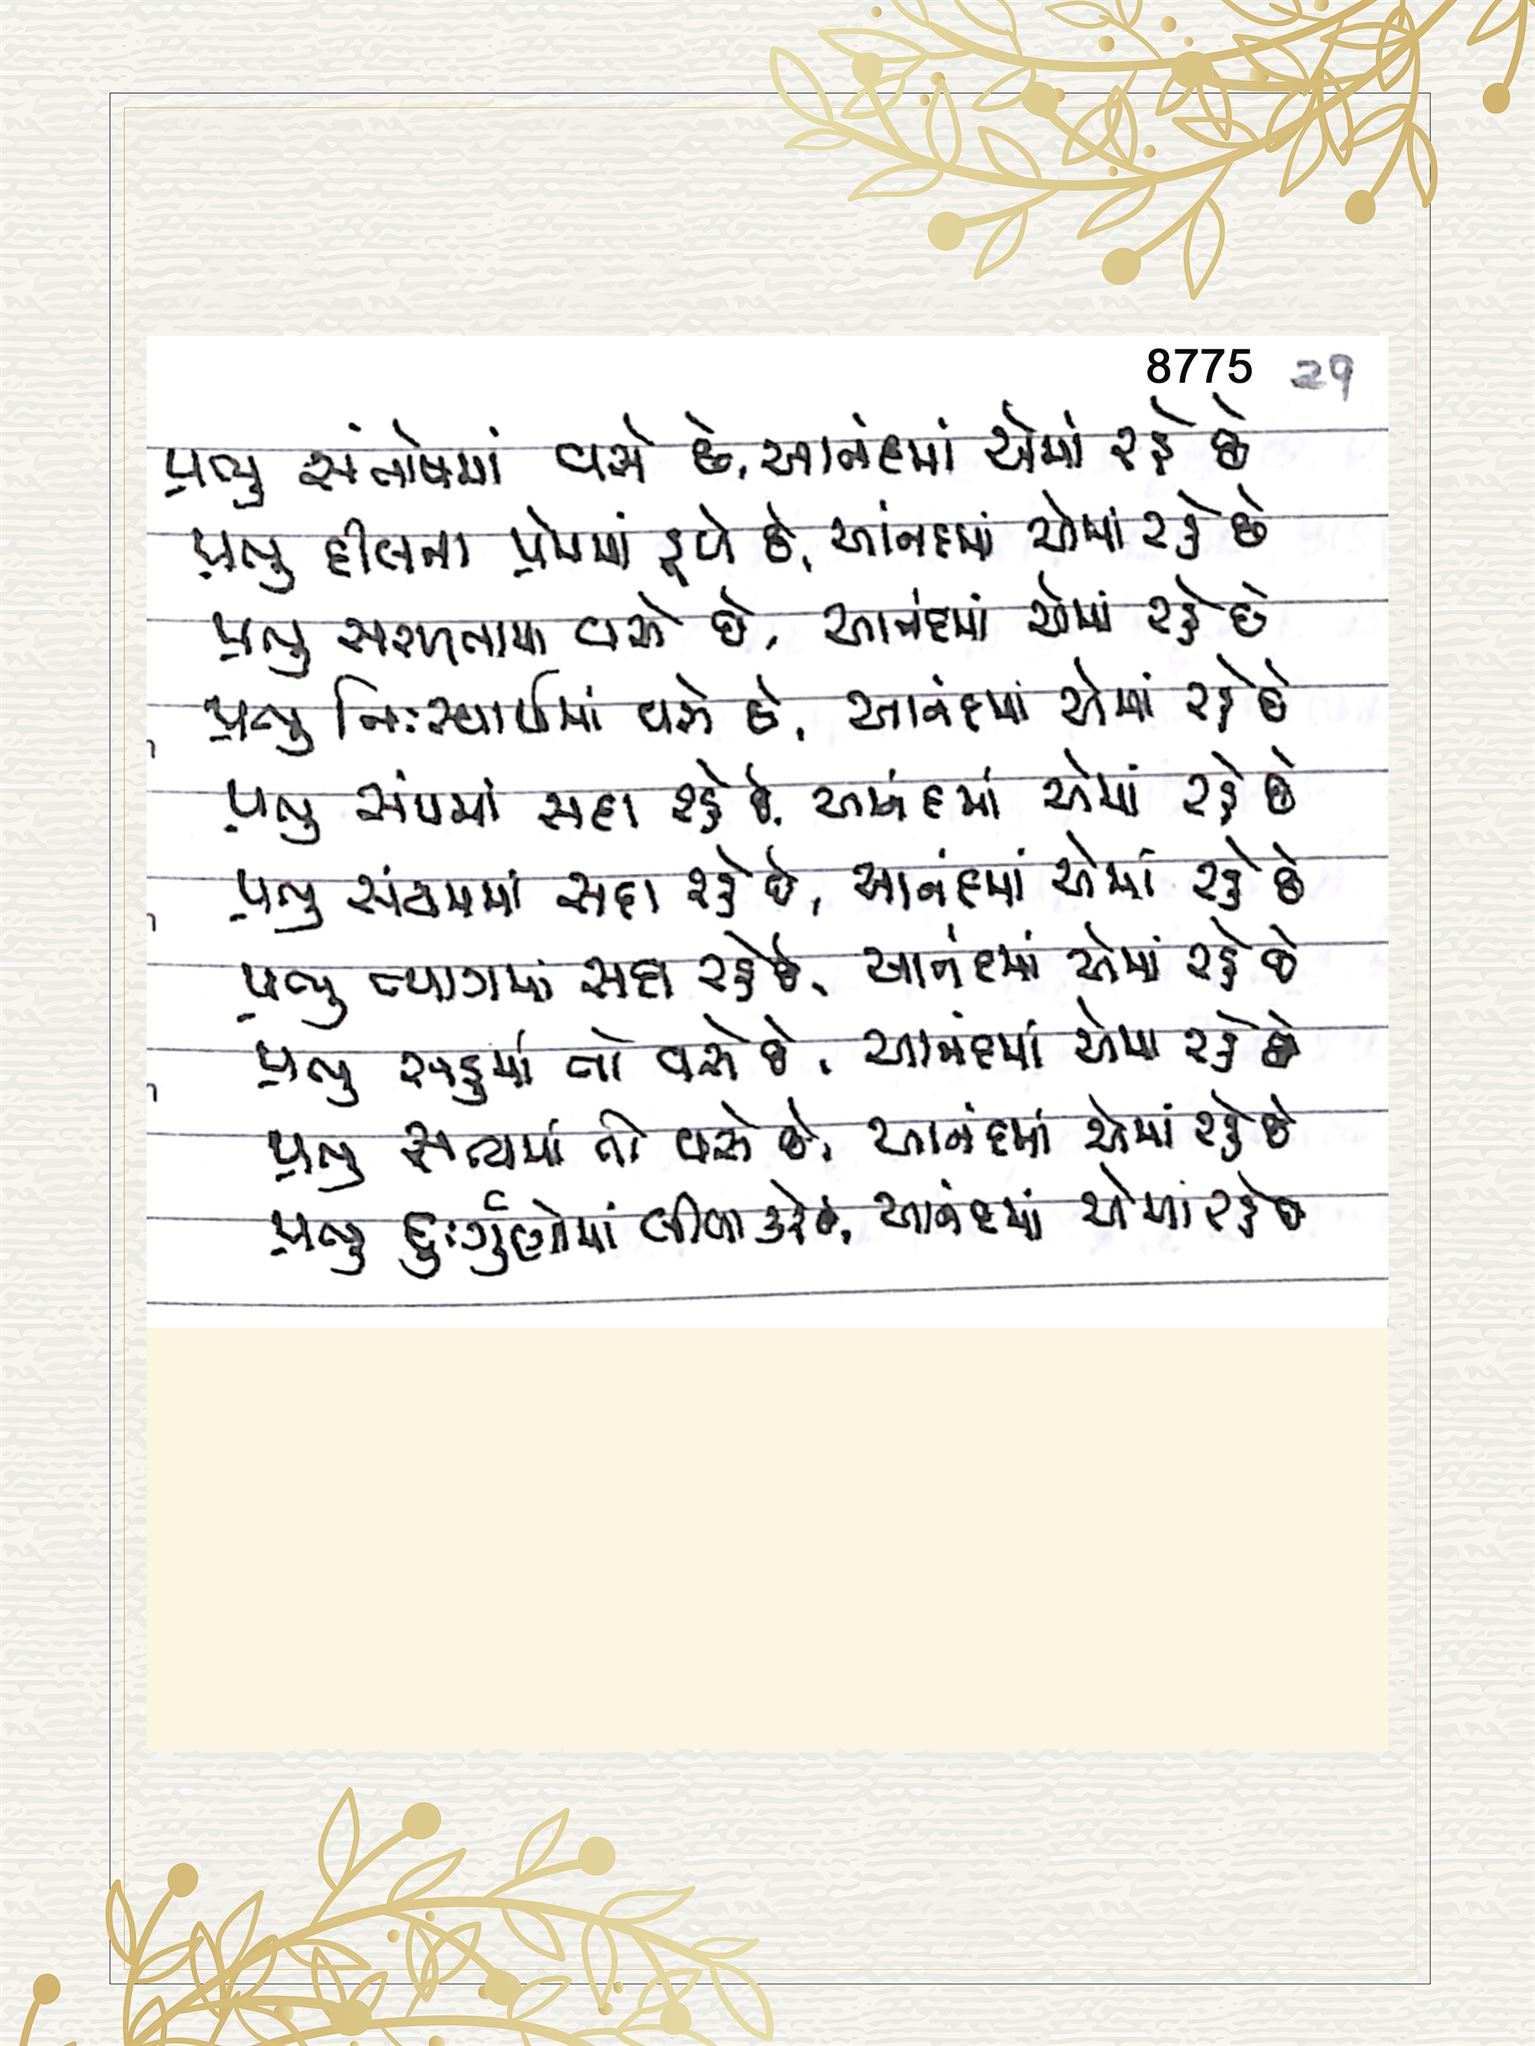 8775 29
પ્રભુ સંતોષમાં વસે છે, આનંદમાં એમાં રહે છે
પ્રભુ દીલના પ્રેમમાં ડૂબે છે, આંનદમાં એમાં રહે છે
પ્રભુ સરળતામા વસે છે, આનંદમાં એમાં રહે છે
પ્રભુ નિઃસ્વાર્થમાં વસે છે, આનંદમાં એમાં રહે છે
પ્રભુ સંપમાં સદા રહે છે, આનંદમાં એમાં રહે છે
પ્રભુ સંયમમાં સદા રહે છે, આનંદમાં એમાં રહે છે
પ્રભુ ત્યાગમાં સદા રહે છે, આનંદમાં એમાં રહે છે
પ્રભુ સહુમાં તો વસે છે, આનંદમાં એમા રહે છે
પ્રભુ સત્યમાં તો વસે છે, આનંદમાં એમાં રહે છે
પ્રભુ દુઃર્ગુણોમાં લીલા કરે છે, આનંદમાં એમાં રહે છે